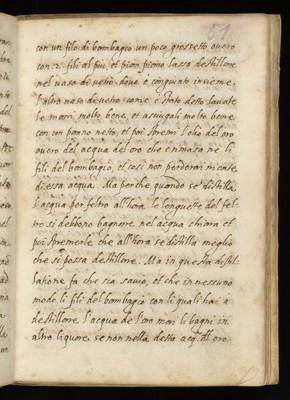 51
con un filo di bombagio un poco grossetto overo
con 2. fili al più, et pian piano lassa destillare
nel vaso di vetro dove è congiunto insieme
l'altro vaso di vetro come è stato detto, lavate
le mani molto bene, et asciugali molto bene
con un panno netto, et poi spremi l'olio del oro
overo del acqua del oro che rimasa ne li
fili del bombagio, et così non perderai niente
di essa acqua. Ma perche quando se distilla
l'acqua per feltro all'hora le lenguette del fel-
tro si debbono bagnare nel acqua chiara et
poi spremerle che all'hora se distilla meglio
che si possa destillare. Ma in questa distil-
latione fa che sia savio, et che in nessuno
modo li fili del bombagio con li quali hai a
destillare l'acqua de l'oro non li bagni in
altro liquore, se non nella detta acq. del oro